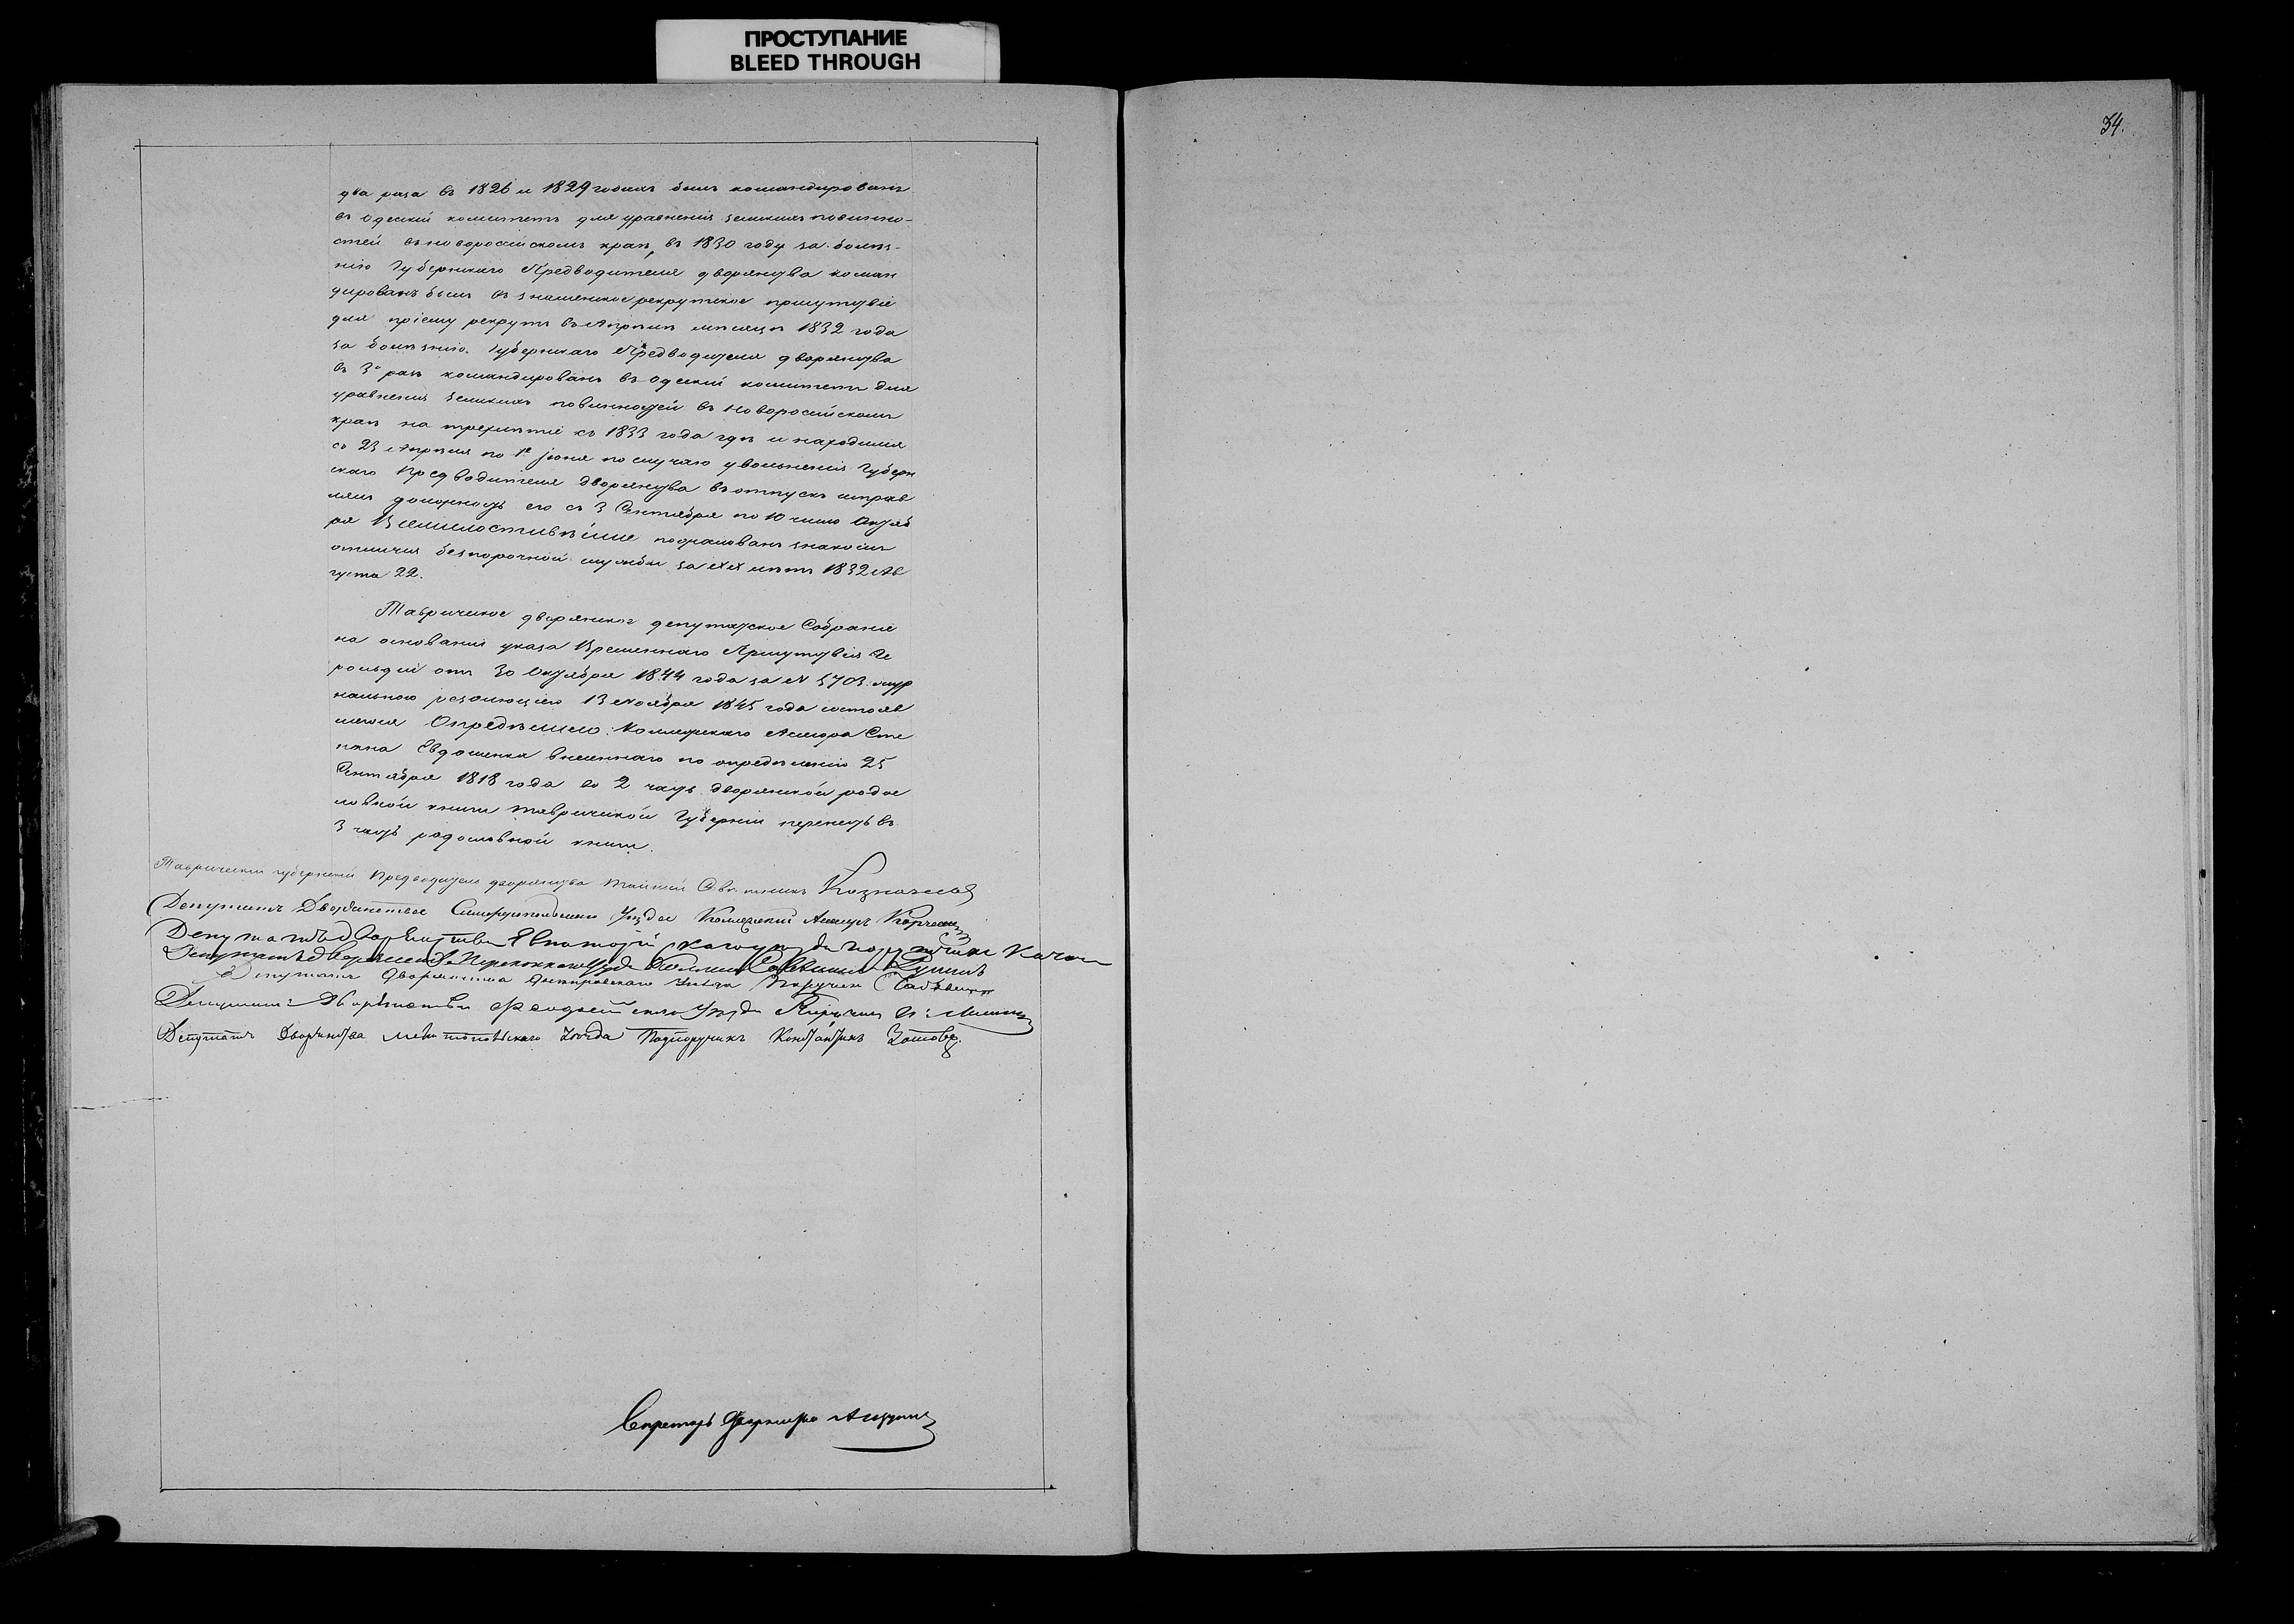 ПРОСТУПАНИЕ
BLEED THROUGH
34.
два раза въ 1826 и 1829 годахъ былъ командированъ
въ Одескій комитетъ для уравненія земскихъ повинно-
стей въ новороссійскомъ краѣ, въ 1830 году за болѣз-
нію Губернскаго Предводителя дворянства коман
дированъ былъ въ рекрутское присутствіе
для пріему рекрутъ въ Апрѣлѣ мѣсяцѣ 1832 года
за болѣзнію Губернскаго Предводителя дворянства
въ 3й разъ командированъ въ Одескій комитетъ для
уравненія земскихъ повинностей въ Новороссійскомъ
краѣ на трехлѣтіе съ 1833 года гдѣ и находился
съ 23 Апрѣля по 1е Іюня по случаю увольненія Губерн
скаго Предводителя Дворянства въ отпускъ исправ
лялъ должность его съ 3 Сентября по 10 число Октяб
ря Всемилостивѣйше пожалованъ знакомъ
отличія безпорочной службы за XX лѣтъ 1832 Ав
густа 22.
Таврическое дворянское депутатское Собраніе
на основаніи указа Временнаго Присутствія Ге
рольдіи отъ 30 Октября 1844 года за N 5703. жур
нальною резолюціею 13 Ноября 1845 года состояв
шеюся Опредѣлило: Коллежскаго Асесора Сте
пана Евдошенка внесеннаго по опредѣленію 25
Сентября 1818 года во 2 часть дворянской родос
ловной книги Таврической Губерніи перенесть въ
3 часть родословной книги.
Таврическій губернскій Предводитель дворянства Тайный Совѣтникъ Казначеевъ
Депутатъ Дворянства Симферопольскаго Уѣзда Коллежскій Асесоръ
Депутатъ дворянства Евпаторійскаго уѣзда поручикъ
Депутатъ дворянства Перекопскаго Уѣзда Совѣтникъ
Депутатъ Дворянства Днѣпровскаго Уѣзда Поручикъ
Депутатъ Дворянства Феодосійскаго Уѣзда
Депутатъ Дворянства Мелитопольскаго Уѣзда Подпоручикъ Константинъ Зотовъ.
Секретарь Дворянства